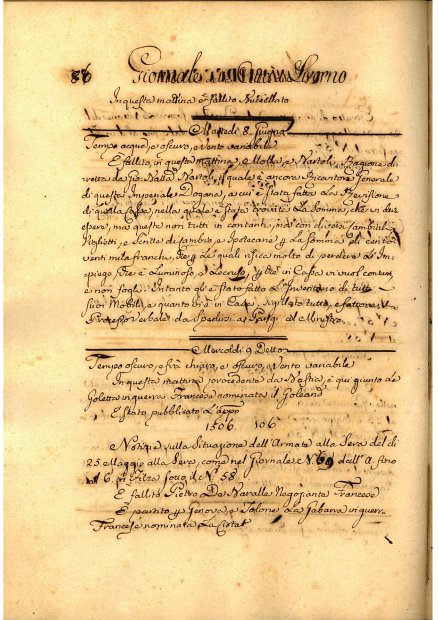 86 Giornale Livorno
In questa mattina è fallito
Martedi 8 Giugno
Tempo acque, e oscuro, e vento variabile
E fallito, in questa mattina, e Molle, e Nastoli, Ragione di
retta da Gio: Nastoli, il quale è ancora Ricevitore Generale
di questa Imperiale Dogana, a cui è stata fatta La Revisione
di quella Cassa, nella quale è stata trovata La somma, che vi deve
essere, ma questa non tutti in contante, ma con diversi
Biglietti, e Scritte di Cambio, e Ipotecarie p La somma di cento
venti mila franchi, che p Le quali risica molto di perdere L'Im-
piego che è Luminoso, e p chè in Cassa vi vuol contanti,
e non fogli. Intanto gl'è stato fatto L'Inventario di tutti
suoi Mobili, e quanto vi è in Casa, e sigillato tutto, e fattone il
Processo Verbale da spedirsi a Parigi al Ministro.
Mercoledi 9 Detto
Tempo oscuro, e frà chiaro, e oscuro, e Vento variabile
In questa mattina proveniente da Bastia, è qui giunto la
Goletta in guerra Francese nominata il Goleand
E stato pubblicato L'appo
1506 306
Notizie sulla Situazione dell'Armata alla Sera del di
25 Maggio alla Sera, come nel Giornale N. 69 dall'A. fino
al 6. in Filza sotto il N. 58
E fallito Pietro De Navalle Negoziante Francese
E partito p Genova, e Tolone La Gabarra in guerra
Francese nominata La Ciotat